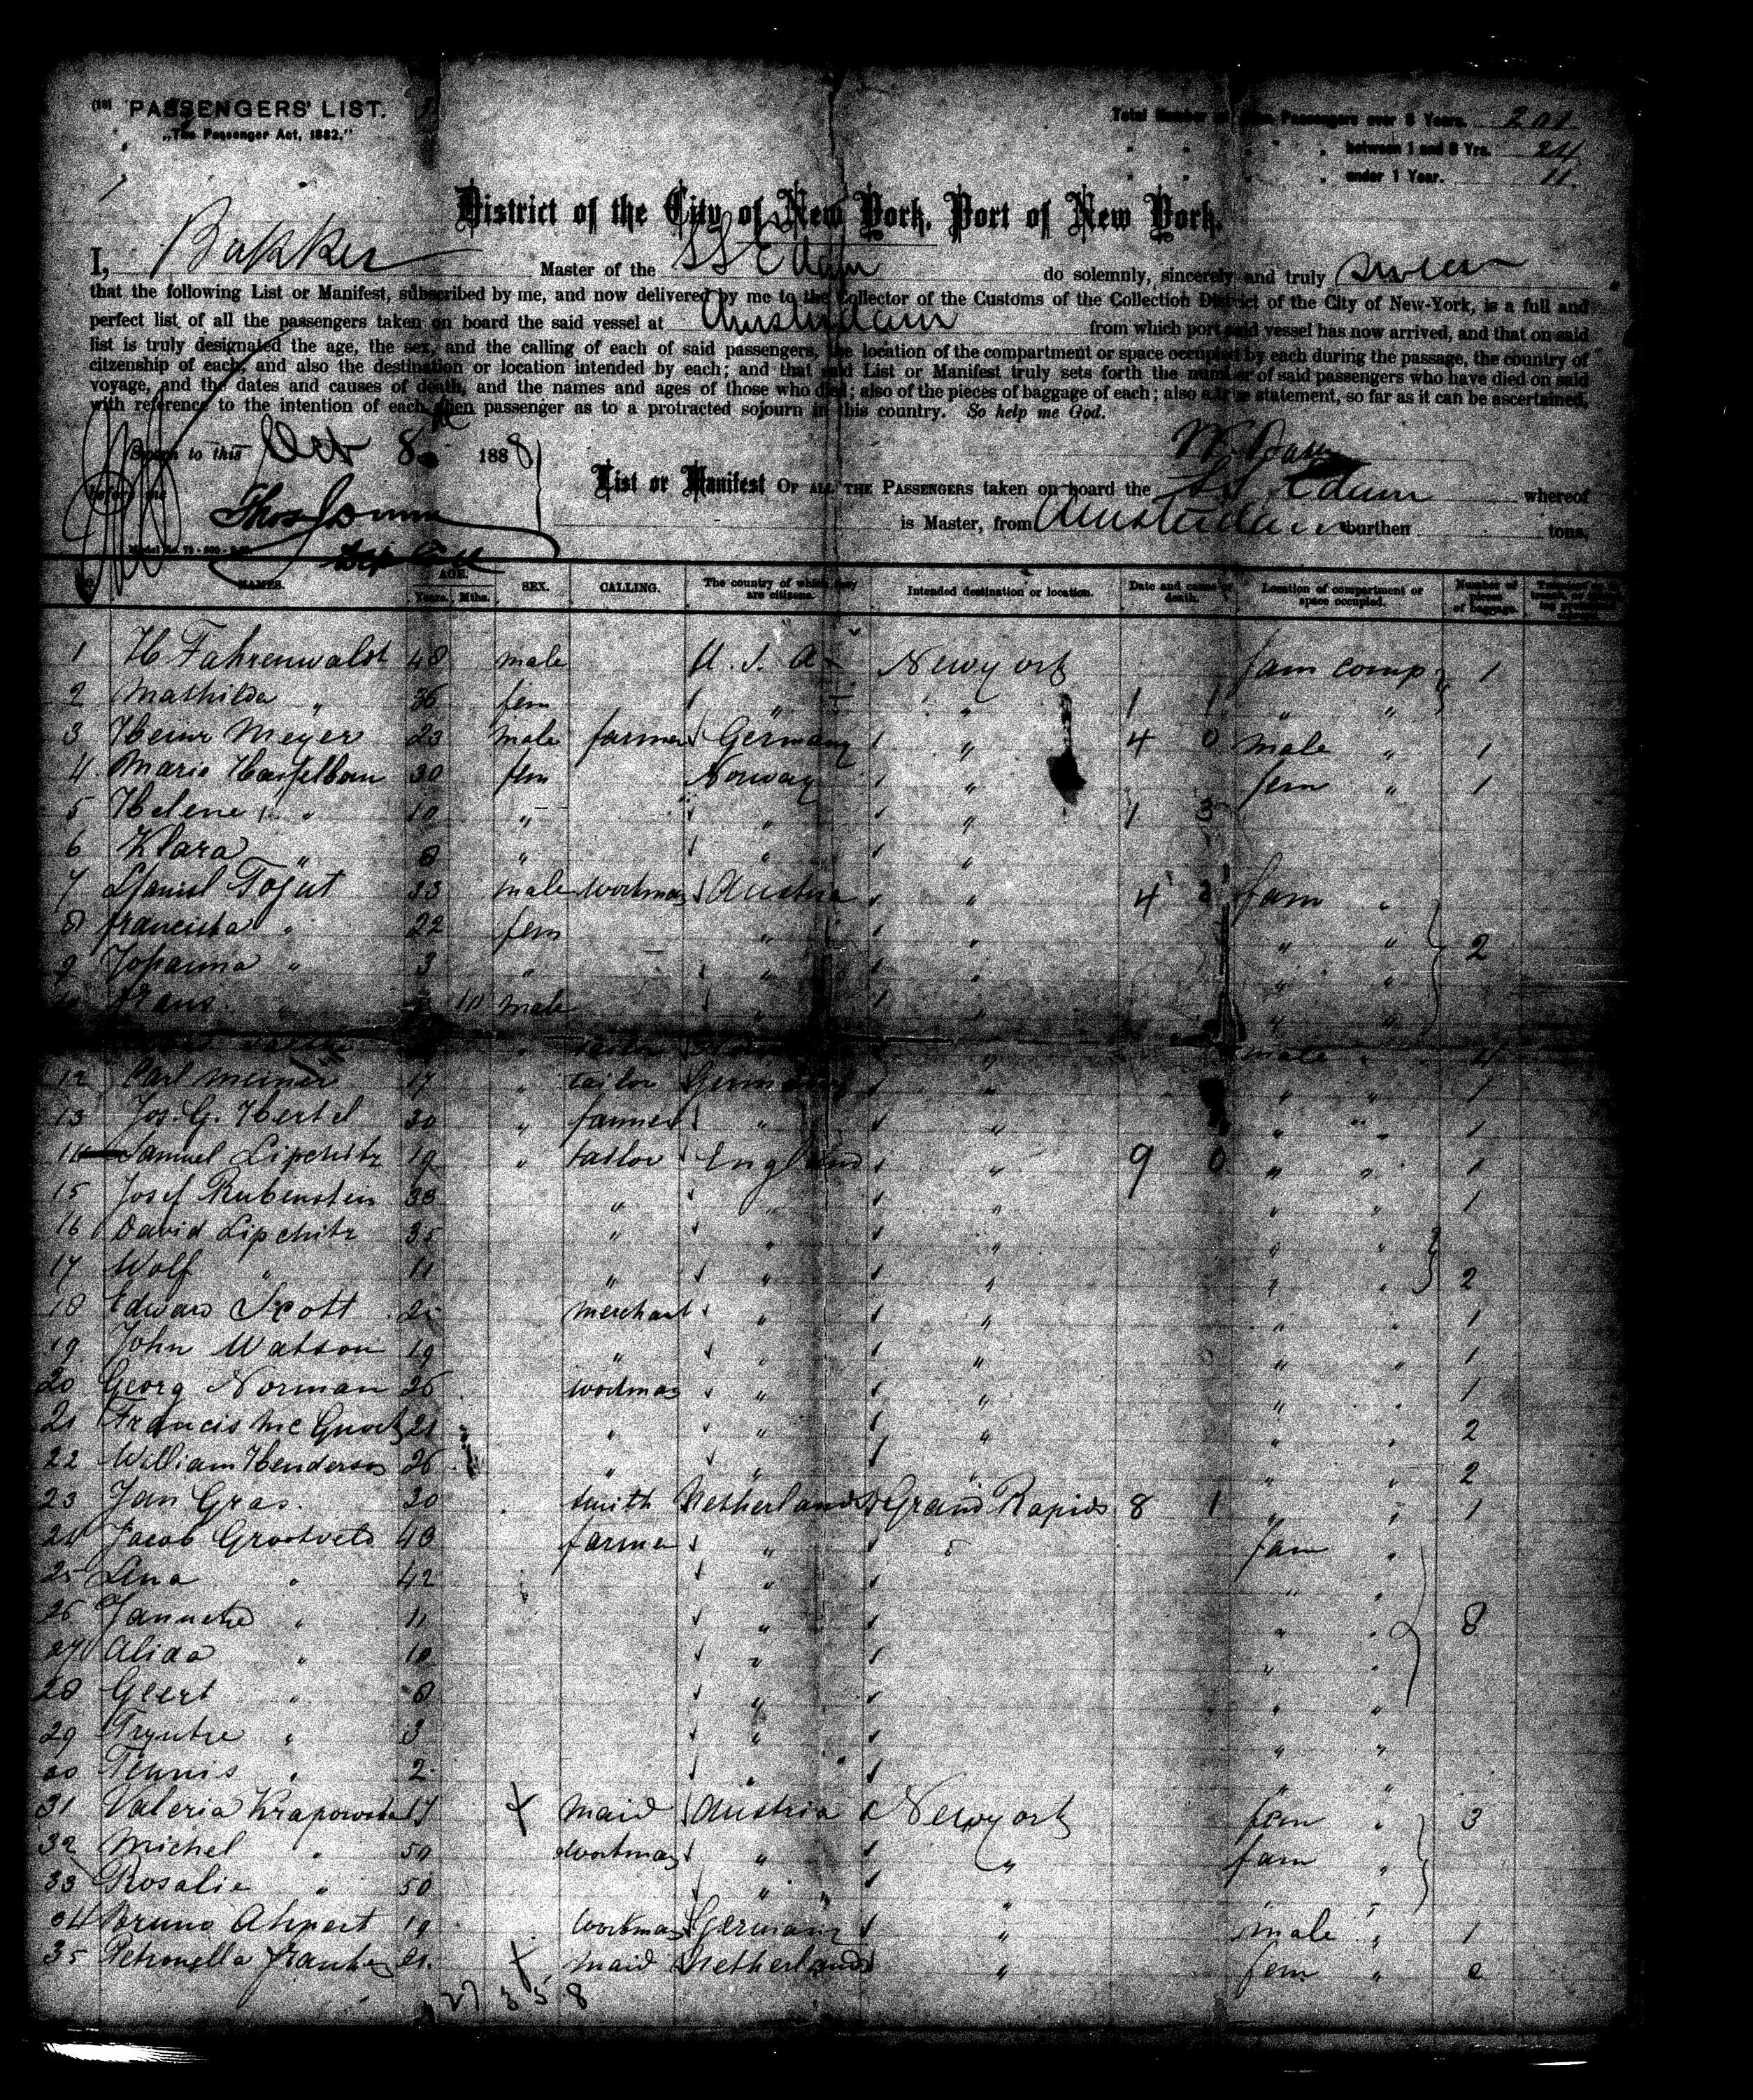 (10) PASSENGERS' LIST.
„The Passenger Act, 1882."
Total Number of Passengers over 8 Years. 201
" " " " between 1 and 8 Yrs. 24
" " " " under 1 Year. 11.
District of the City of New York, Port of New York.
I, Bakker Master of the SS Edam do solemnly, sincerely and truly swear
that the following List or Manifest, subscribed by me, and now delivered by me to the Collector of the Customs of the Collection District of the City of New-York, is a full and
perfect list of all the passengers taken on board the said vessel at Amsterdam from which port said vessel has now arrived, and that on said
list is truly designated the age, the sex, and the calling of each of said passengers, the location of the compartment or space occupied by each during the passage, the country of
citzenship of each, and also the destination or location intended by each; and that said List or Manifest truly sets forth the number of said passengers who have died on said
voyage, and the dates and causes of death, and the names and ages of those who died; also of the pieces of baggage of each; also a true statement, so far as it can be ascertained,
with reference to the intention of each alien passenger as to a protracted sojourn in this country. So help me God.
Sworn to this Oct 8 1888
before me
List or Manifest OF ALL THE PASSENGERS taken on board the SS Edam whereof
is Master, from Amsterdam burthen tons.
NAMES. AGE. Years. Mths. SEX. CALLING. The country of which they are citizens. Intended destination or location. Date and cause of death. Location of compartment or space occupied. Number of pieces of baggage.
1 H. Fahrenwaldt 48 male U. S. A. Newyork fam comp 1
2 Mathilda " 36 fem " " 1 1 " "
3 Heinr Meyer 23 male farmer Germany " 4 0 male " 1
4 Marie 30 fem Norway " fem " 1
5 Helene " 10 " " " 1 3
6 Klara " 8 " " "
7 Daniel 33 male workman Austria " 4 fam "
8 francista " 22 fem " " " " 2
9 Johanna " 3 " " " " "
10 frans " 10 male " " " "
tailor " male " 4
12 Carl Meiner 17 " tailor Germany " " " 1
13 Jos. G. Hertel 30 " farmer " " " " 1
14 Samuel Lipchitz 19 " tailor England " 9 0 " " 1
15 Josef Rubenstein 38 " " " " " 1
16 David Lipchitz 35 " " " " "
17 Wolf " 11 " " " " " 2
18 Edward Scott merchant " " " " 1
19 John Watson 19 " " " " " 1
20 Georg Norman 26 workman " " " " 1
21 Francis Mc 21 " " " " " 2
22 William Henderson 26 " " " " " 2
23 Jan Gras. 20 smith Netherlands Grand Rapids 8 1 " " 1
24 Jacob Grootveld 43 farmer " fam "
25 Lena " 42 " " "
26 Jannetje " 11 " " " 8
27 Alida " 10 " " "
28 Geert " 8 " " "
29 Tryntje " 3 " " "
30 Teunis " 2 " " "
31 Valeria Krapowska 17 x maid Austria Newyork fem " 3
32 Michel " 50 workman " " fam "
33 Rosalie " 50 " " " "
34 Bruno 19 workman Germany " male " 1
35 Petronella 21. x maid Netherlands " fem "
27 3 5 8